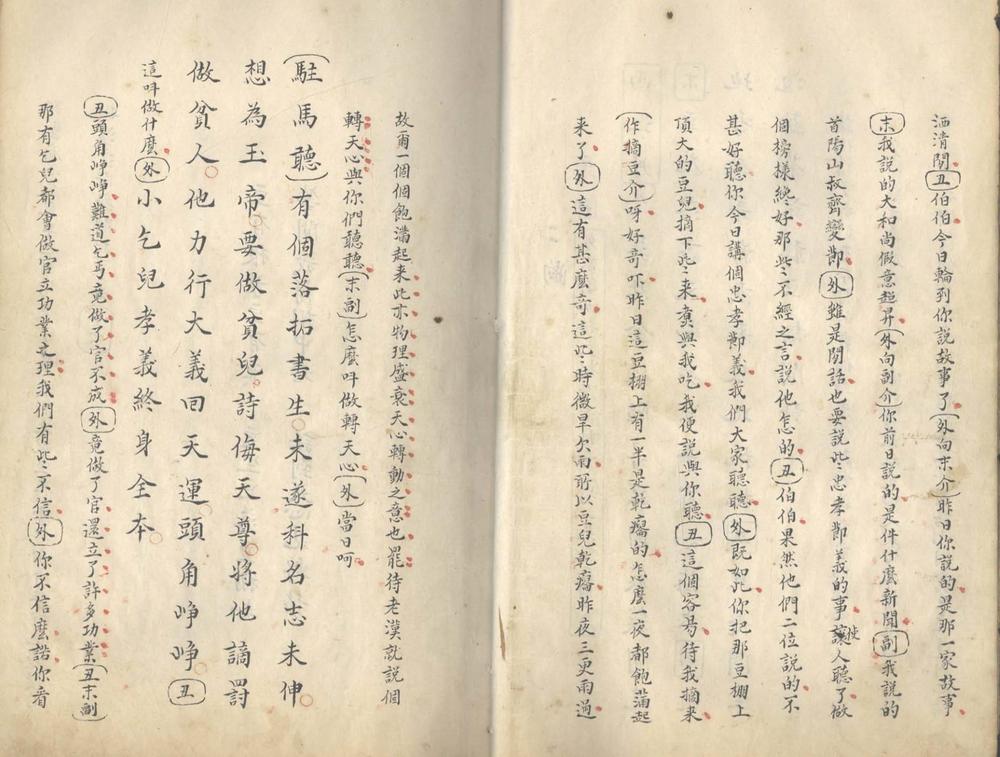 洒清閒(丑)伯伯今日輪到你說故事了(外向末介)昨日你說的是那一家故事
(末)我說的大和尚假意超昇(外向副介)你前日說的是件什麼新聞(副)我說的
首陽山叔齊變節(外)雖是閒話也要說些忠孝節義的事讓使人聽了做
個榜樣終好那些不經之言說他怎的(丑)伯伯果然他們二位說的不
甚好聽你今日講個忠孝節義我們大家聽聽(外)既如此你把那豆棚上
頂大的豆兒摘下些來煑與我吃我便說與你聽(丑)這個容易待我摘來
(作摘豆介)呀好奇吓昨日這豆棚上有一半是乾癟的怎麼一夜都飽滿起
来了(外)這有甚麼奇這些時微旱欠雨所以豆兒乾癟昨夜三更雨過
故爾一個個飽滿起来此亦物理盛衰天心轉動之意也罷待老漢就說個
轉天心與你們聽聽(末副)怎麼呌做轉天心(外)當日呵
(駐馬聽)有個落拓書生未遂科名志未伸
想為玉帝要做貧兒詩侮天尊將他謫罸
做貧人他力行大義回天運頭角崢崢(丑)
這呌做什麼(外)小乞兒孝義終身全本
(丑)頭角崢崢難道乞丐竟做了官不成(外)竟做了官還立了許多功業(丑末副)
那有乞兒都會做官立功業之理我們有些不信(外)你不信麼諾你看